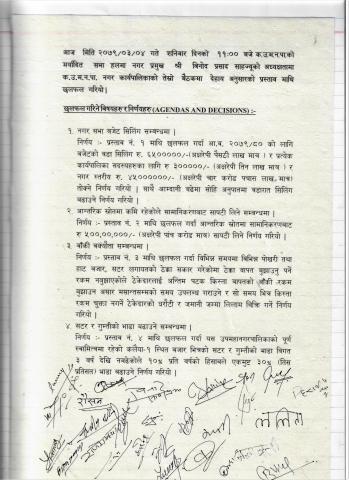 आज मिति २०७९/०३/०४ गते शनिबार दिनको ११:०० बजे क.उ.म.न.पा.को
मर्यादित सभा हलमा नगर प्रमुख श्री विनोद प्रसाद साहज्यूको अध्यक्षतामा
क.उ.म.न.पा. नगर कार्यपालिकाको तेस्रो बैठकमा देहाय अनुसारको प्रस्ताव माथि
छुलफल गरियो।
छुलफल गरिने बिषयहरु र निर्णयहरु(AGENDAS AND DECISIONS) :-
१. नगर सभा बजेट सिलिंग सम्बन्धमा।
निर्णय :- प्रस्ताव नं. १ माथि छुलफल गर्दा आ.ब. २०७९/८० को लागि
बजेटको वडा सिलिंग रु. ६५०००००/-(अक्षरेपी पैंसटी लाख मात्र। र प्रत्येक
कार्यपालिका सदस्यहरुका लागि रु ३०००००/- (अक्षरेपी तिन लाख मात्र। र
नगर स्तरीय रु. (अक्षरेपी चार करोड पचास लाख, मात्र)
तोक्ने निर्णय गरियो। साथै आम्दानी बढेमा सोहि अनुपातमा वडागत सिलिंग
बढाउने निर्णय गरियो।
२. आन्तरिक स्रोतमा कमि रहेकोले सामानिकरणबाट सापटी लिने सम्बन्धमा।
निर्णय :- प्रस्ताव नं. २ माथि छुलफल गर्दा आन्तरिक स्रोतमा सामानिकरणबाट
रु ५००,००,०००/- (अक्षरेपी पांच करोड मात्र) सापटी लिने निर्णय गरियो।
३. बाँकी बक्यौता सम्बन्धमा।
निर्णय :- प्रस्ताव नं. ३ माथि छुलफल गर्दा विभिन्न समयमा विभिन्न पोखरी तथा
हाट बजार, सटर लगायतको ठेक्का सकार गरेकोमा ठेक्का वापत बुझाउनु पर्ने
रकम नबुझाएकोले ठेकेदारलाई अन्तिम पटक किस्ता बापतको।बाँकी।रकम
बुझाउन असार मसान्तसम्मको समय उपलब्ध गराउने र सो समय भित्र किस्ता
रकम चुक्ता नगर्ने ठेकदारको धरौटी र जमानी जस्मा लिलाम बिक्रि गर्ने निर्णय
गरियो।
४. सटर र गुम्तीको भाडा बढाउने सम्बन्धमा।
निर्णय :- प्रस्ताव नं. ४ माथि छुलफल गर्दा यस उपमहानगरपालिकाको पूर्ण
स्वामित्वमा रहेको कलैया-१ स्थित बजार भित्रको सटर र गुम्तीको भाडा बिगत
३ वर्ष देखि नबढेकोले १०% प्रति वर्षको हिसाबले एकमुष्ट ३०% (तिस
प्रतिसत) भाडा बढाउने निर्णय गरियो।
रोसन
ललिता